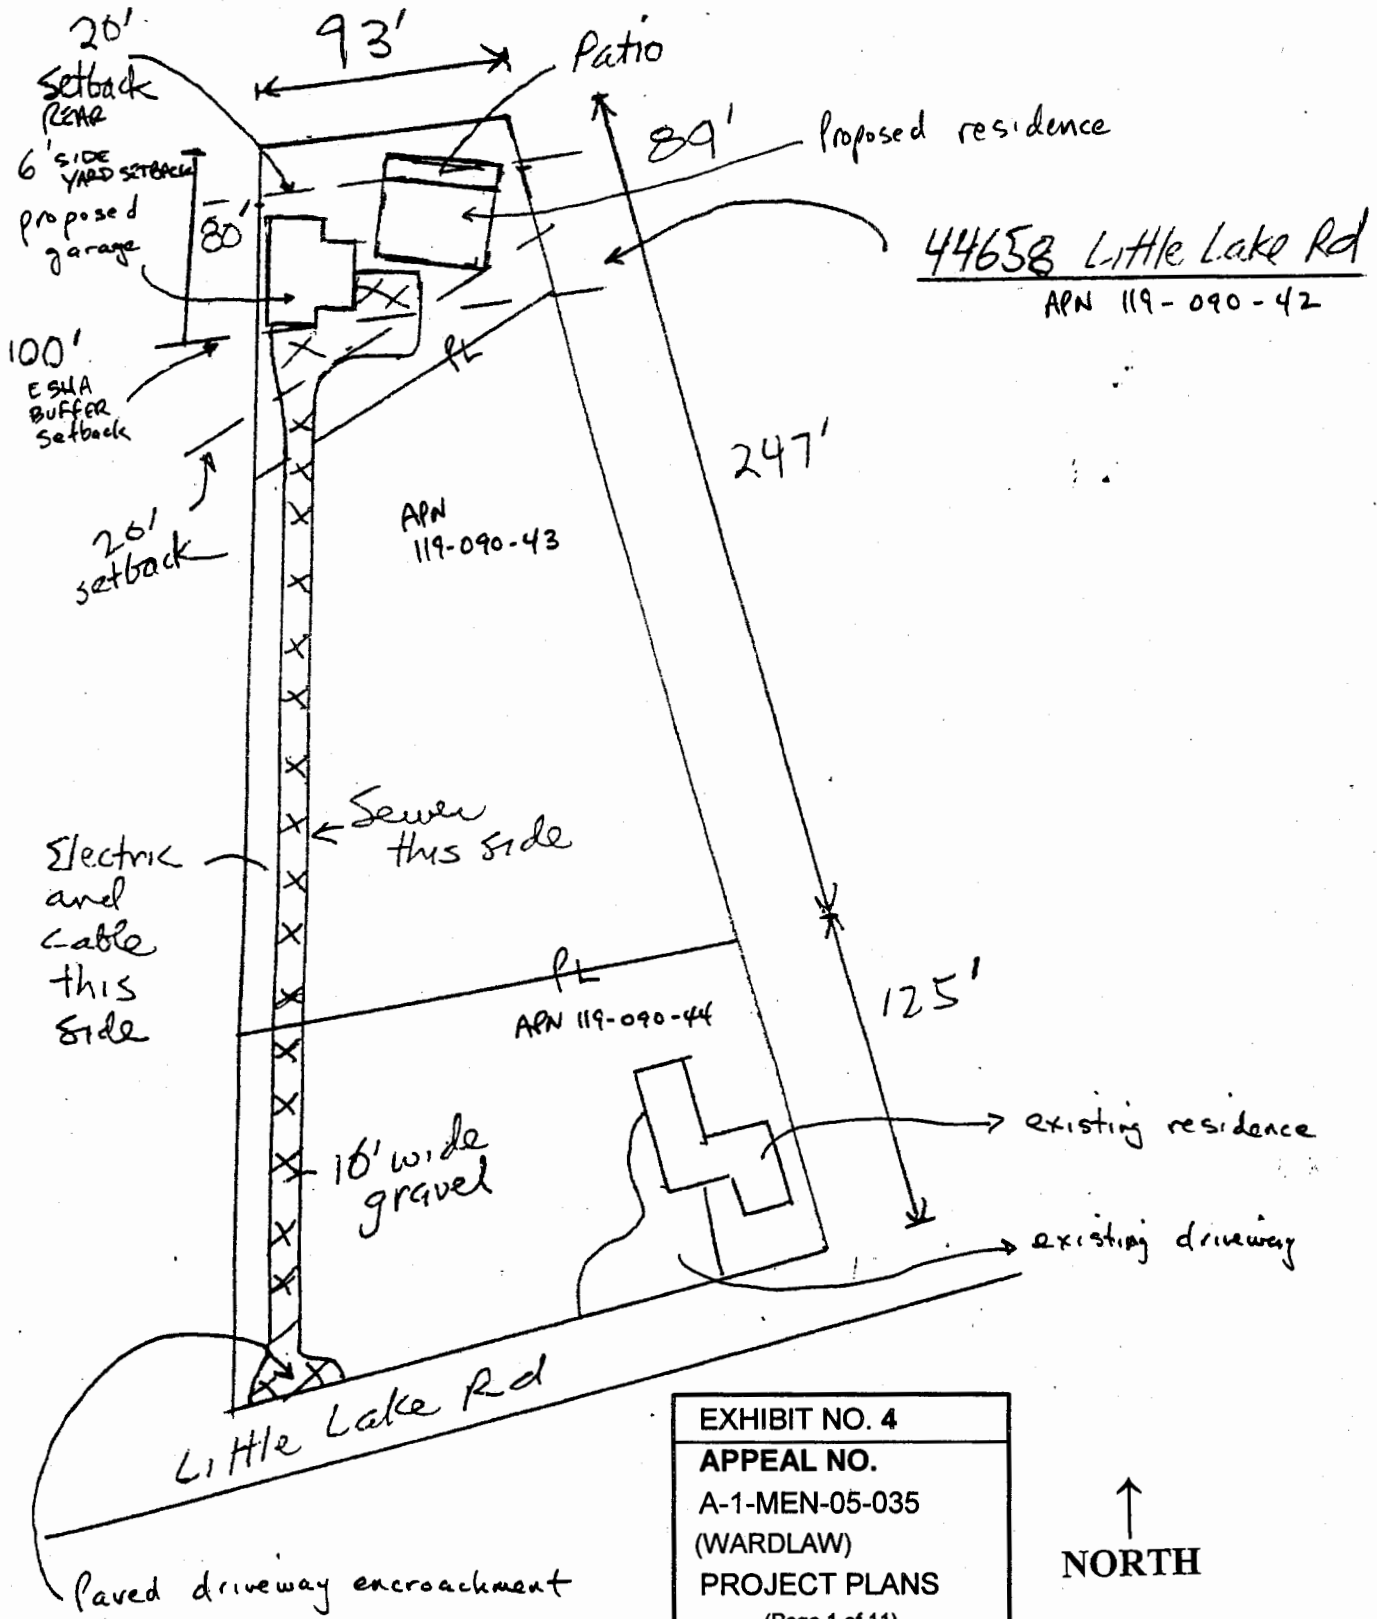 20'
setback
REAR
93'
Patio
89'
Proposed residence
6' SIDE
YARD SETBACK
proposed
garage
80'
44658 Little Lake Rd
APN 119-090-42
100'
ESHA
BUFFER
setback
PL
247'
20'
setback
APN
119-090-43
Sewer
this side
Electric
and
cable
this
side
PL
APN 119-090-44
125'
existing residence
16' wide
gravel
existing driveway
Little Lake Rd
Paved driveway encroachment
EXHIBIT NO. 4
APPEAL NO.
A-1-MEN-05-035
(WARDLAW)
PROJECT PLANS
(Page 1 of 11)
NORTH